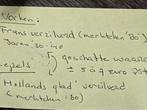 Vorken:
Frans verzilverd (merkteken '80')
Jaren '30-'40
geschatte waarde
± 5 à 7 euro
Hollands glad verzilverd
(merkteken '80)